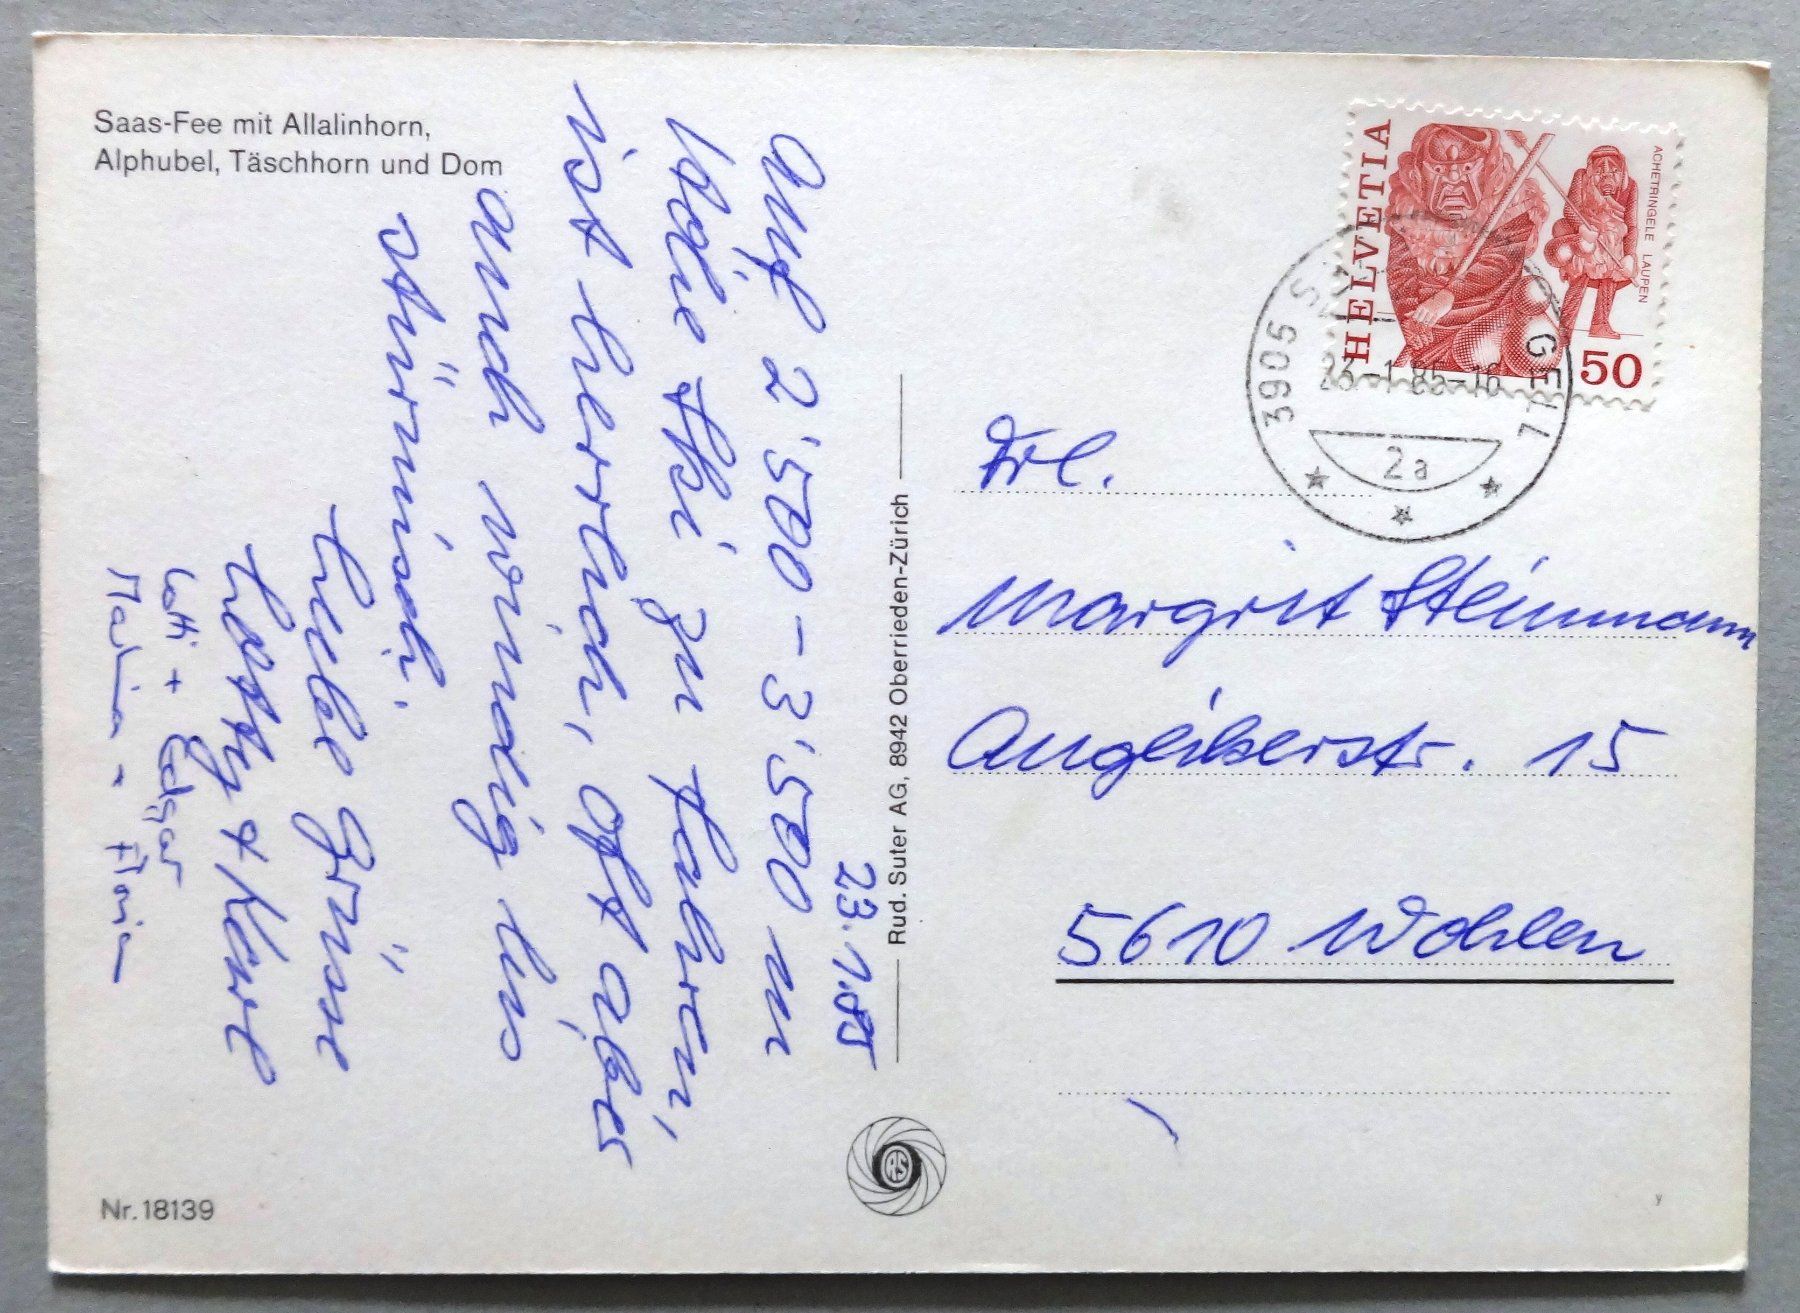 Saas-Fee mit Allalinhorn,
Alphubel, Täschhorn und Dom
23.1.85
Auf 2'500 - 3'500 m
Höhe Ski zu fahren,
ist herrlich, oft aber
auch windig bis
stürmisch.
Liebe Grüsse
+ Kurt
Lotti + Edgar
Martina + Florian
Rud. Suter AG, 8942 Oberrieden-Zürich
RS
HELVETIA
ACHETRINGELE LAUPEN
50
3905 S GELL
23.-1.85-16
2a
Frl.
Margrit Steinmann
Anglikerstr. 15
5610 Wohlen
Nr. 18139
y